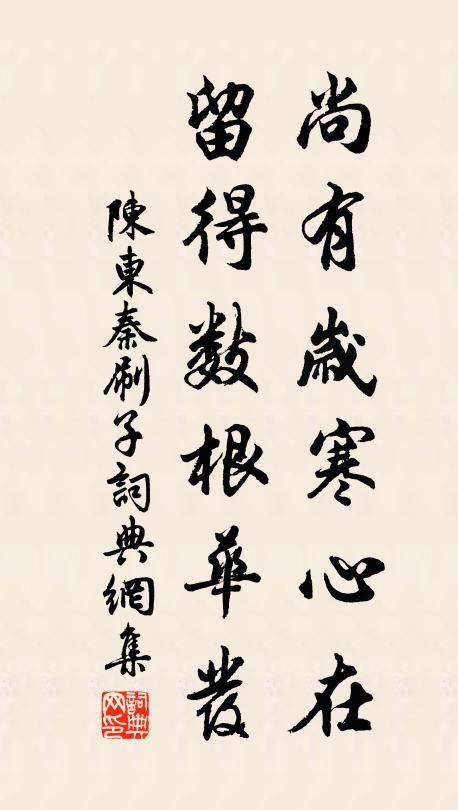 尚有歲寒心在
留得數根華髮
陳東秦刷子詞典網集
詞典网印